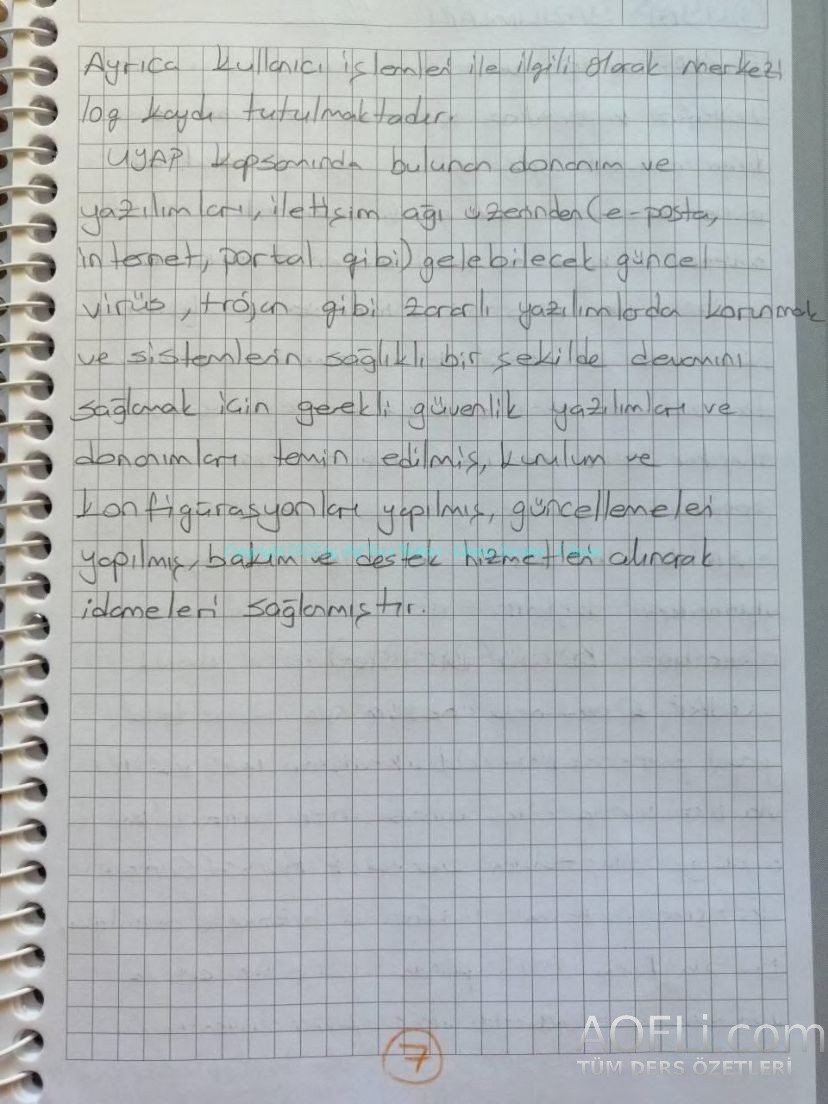 Ayrıca kullanıcı işlemleri ile ilgili olarak merkezi
log kaydı tutulmaktadır.
UYAP kapsamında bulunan donanım ve
yazılımları, iletişim ağı üzerinden (e-posta,
internet, portal gibi) gelebilecek güncel
virüs, trojan gibi zararlı yazılımlarda korunmak
ve sistemlerin sağlıklı bir şekilde devamını
sağlamak için gerekli güvenlik yazılımları ve
donanımları temin edilmiş, kurulum ve
konfigürasyonları yapılmış, güncellemeleri
yapılmış, bakım ve destek hizmetleri alınarak
idameleri sağlanmıştır.
7
AOFLi.com
TÜM DERS ÖZETLERİ